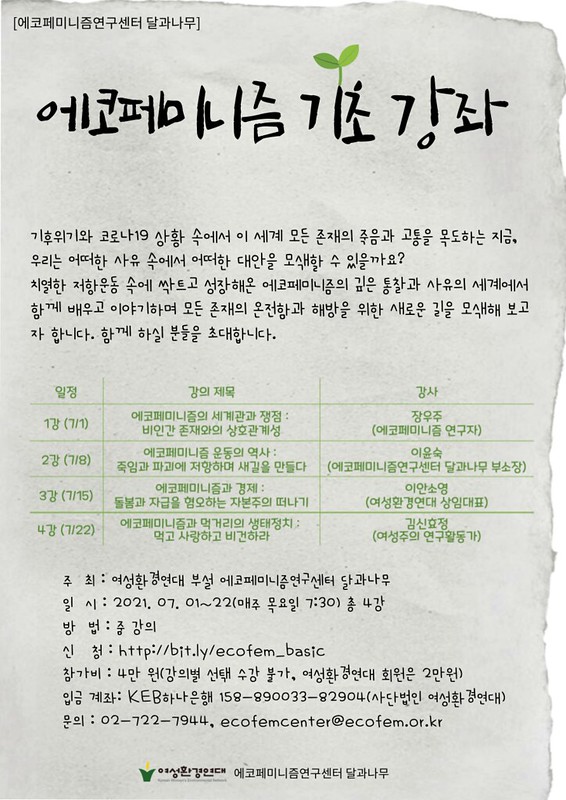 [에코페미니즘연구센터 달과나무]
에코페미니즘 기초 강좌
기후위기와 코로나19 상황 속에서 이 세계 모든 존재의 죽음과 고통을 목도하는 지금,
우리는 어떠한 사유 속에서 어떠한 대안을 모색할 수 있을까요?
치열한 저항운동 속에 싹트고 성장해온 에코페미니즘의 깊은 통찰과 사유의 세계에서
함께 배우고 이야기하며 모든 존재의 온전함과 해방을 위한 새로운 길을 모색해 보고
자 합니다. 함께 하실 분들을 초대합니다.
일정 강의 제목 강사
1강 (7/1) 에코페미니즘의 세계관과 쟁점 : 장우주
비인간 존재와의 상호관계성 (에코페미니즘 연구자)
2강 (7/8) 에코페미니즘 운동의 역사 : 이윤숙
죽임과 파괴에 저항하며 새길을 만들다 (에코페미니즘연구센터 달과나무 부소장)
3강 (7/15) 에코페미니즘과 경제 : 이안소영
돌봄과 자급을 혐오하는 자본주의 떠나기 (여성환경연대 상임대표)
4강 (7/22) 에코페미니즘과 먹거리의 생태정치 : 김신효정
먹고 사랑하고 비건하라 (여성주의 연구활동가)
주 최 : 여성환경연대 부설 에코페미니즘연구센터 달과나무
일 시 : 2021. 07. 01~22(매주 목요일 7:30) 총 4강
방 법 : 줌 강의
신 청 : http://bit.ly/ecofem_basic
참가비 : 4만 원(강의별 선택 수강 불가, 여성환경연대 회원은 2만원)
입금 계좌: KEB하나은행 158-890033-82904(사단법인 여성환경연대)
문의 : 02-722-7944, ecofemcenter@ecofem.or.kr
여성환경연대 에코페미니즘연구센터 달과나무
Korean Women's Environmental Network